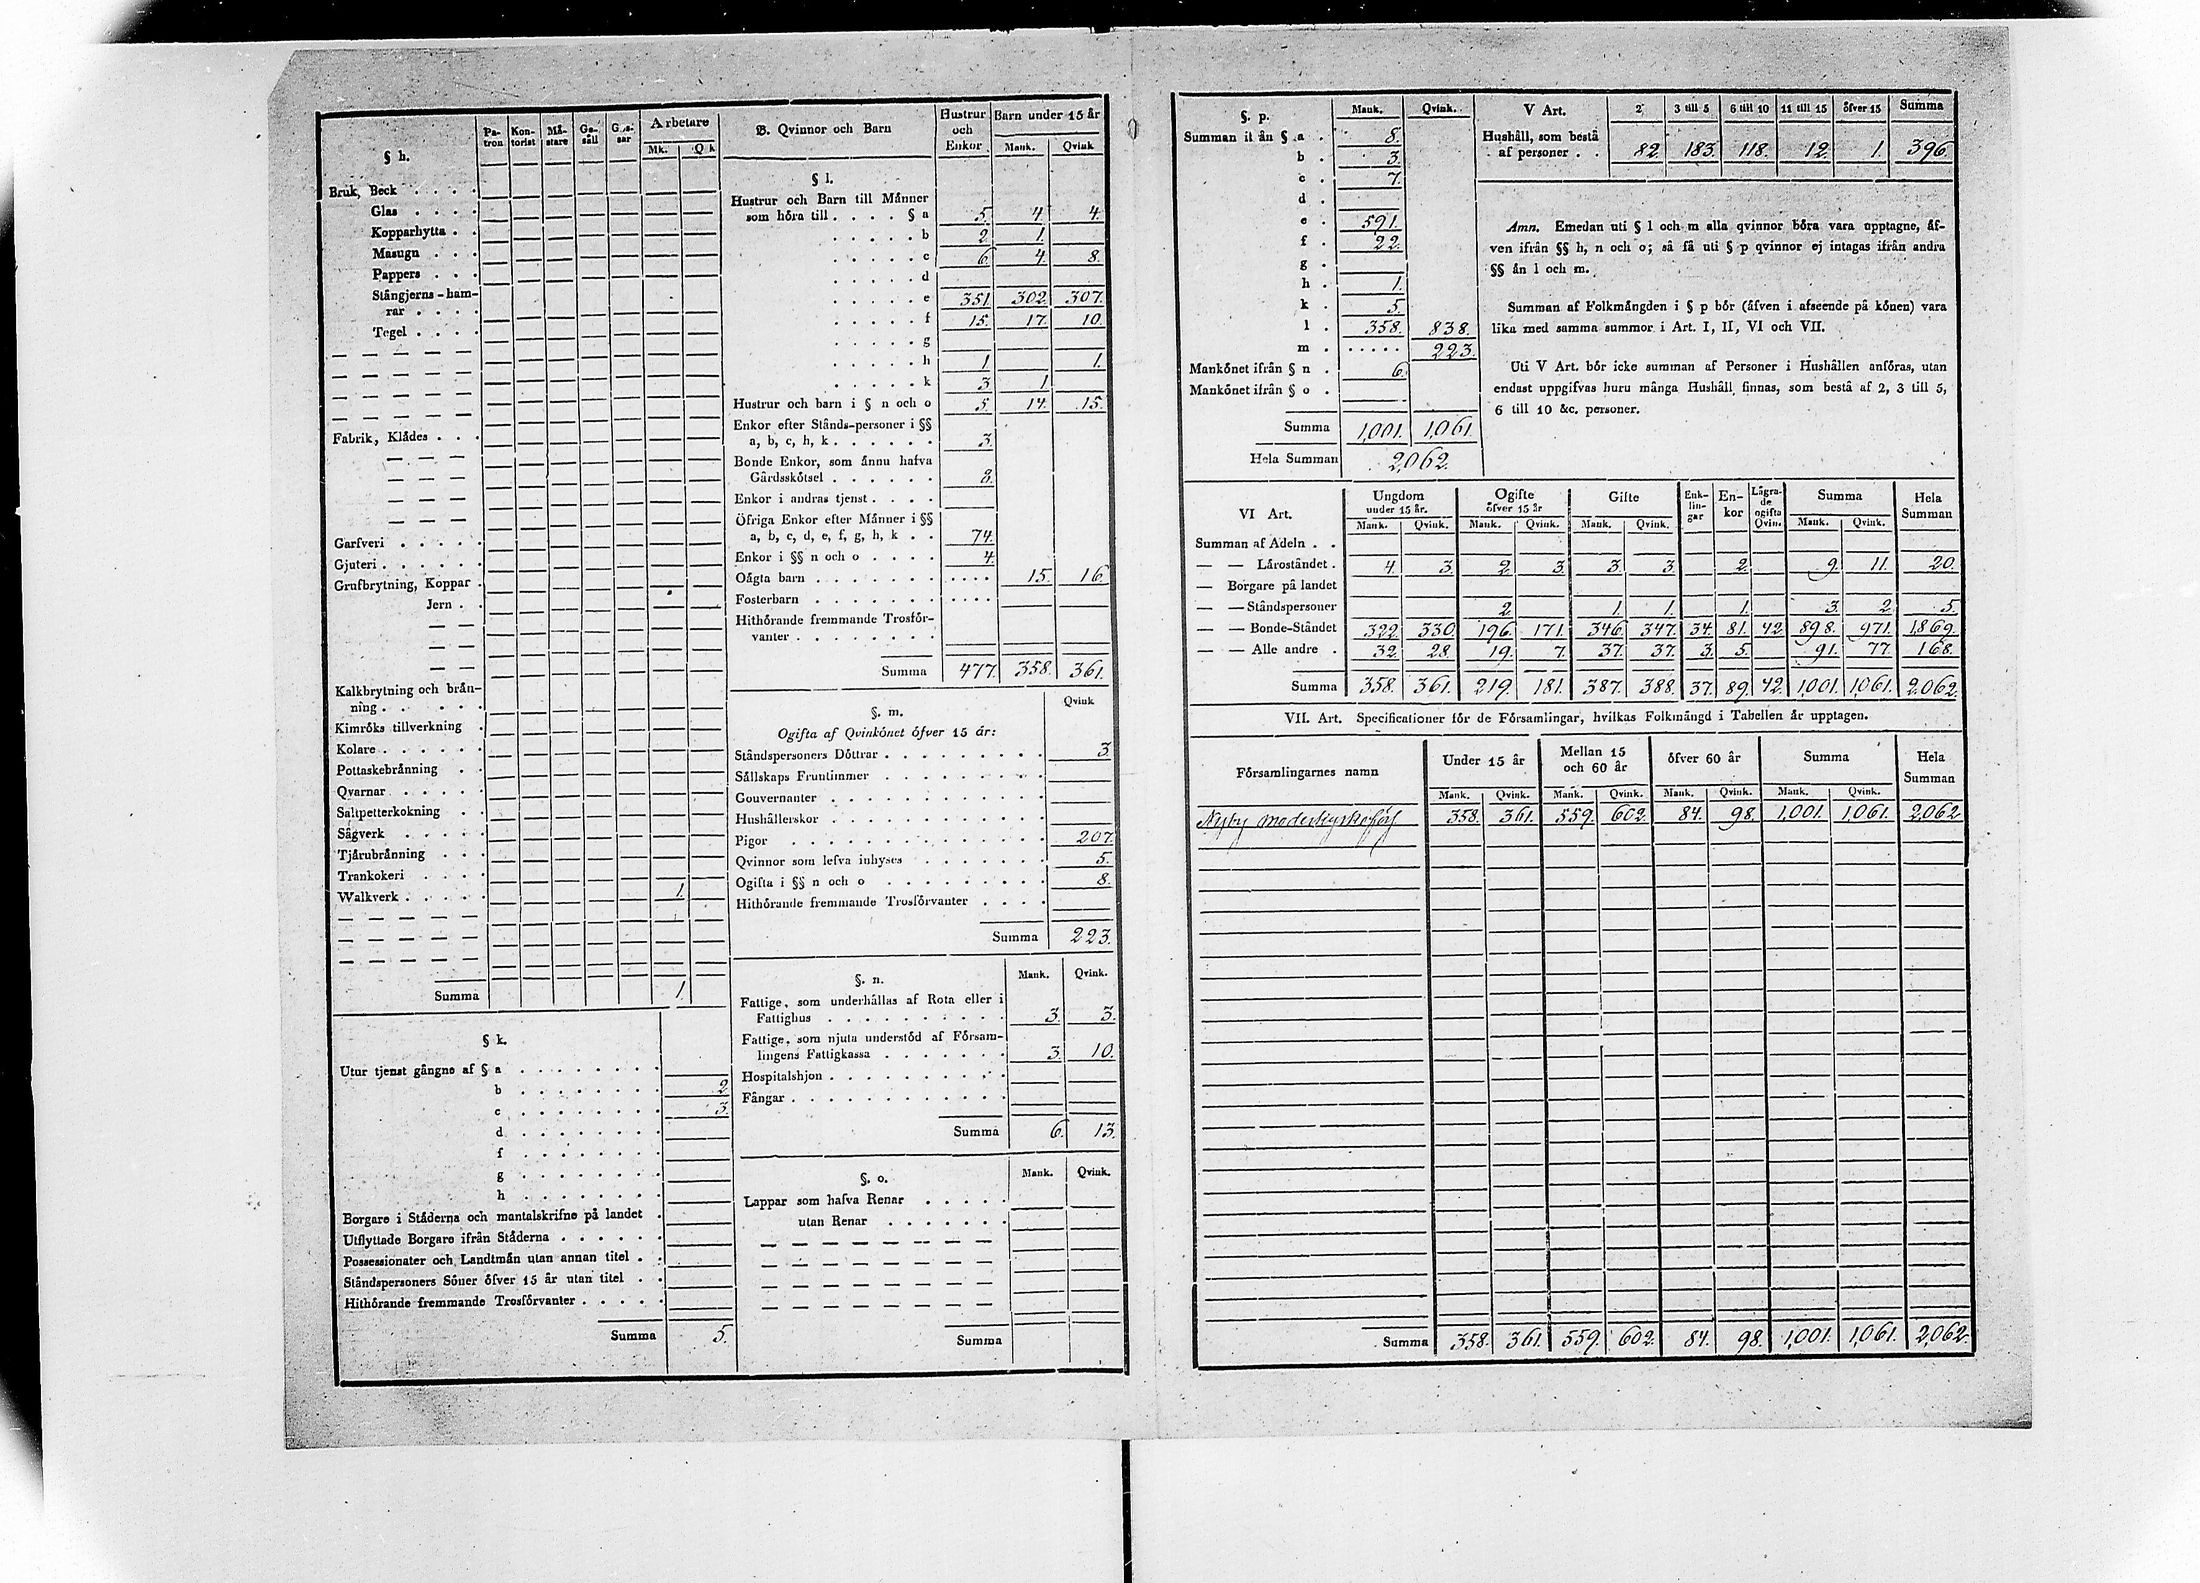 § h.
Pa-tron Kon-torist Mä-stare Ge-säll Gos-sar Arbetare
Mk. Qk
Bruk, Beck . . . .
Glas . . . .
Kopparhytta . .
Masugn . . .
Pappers . . .
Stångjerns-ham-
rar . . . .
Tegel . . . .
Fabrik, Klådes . . .
Garfveri . . . . .
Gjuteri . . . . . .
Grufbrytning, Koppar .
Jern . .
Kalkbrytning och brån-
ning . . . . . .
Kimróks tillverkning .
Kolare . . . . . .
Pottaskebrånning . .
Qvarnar . . . . . .
Saltpetterkokning . .
Sågverk . . . . .
Tjårubrånning . . .
Trankokeri . . . .
Walkverk . . . . . 1.
Summa 1.
§ k.
Utur tjenst gångne af § a . . . . . . . .
b . . . . . . . . 2
c . . . . . . . . 3.
d . . . . . . . .
f . . . . . . . .
g . . . . . . . .
h . . . . . . . .
Borgare i Ståderna och mantalskrifne på landet .
Utflyttade Borgare ifrån Ståderna . . . . . .
Possessionater och Landtmån utan annan titel . .
Ståndspersoners Sóner ófver 15 år utan titel . .
Hithórande fremmande Trosfórvanter . . . . .
Summa 5.
B. Qvinnor och Barn
Hustrur och Enkor Barn under 15 år
Mank. Qvink
§ l.
Hustrur och Barn till Månner
som hóra till . . . . § a 5. 4. 4.
. . . . . b 2. 1.
. . . . . c 6. 4. 8.
. . . . . d
. . . . . e 351. 302. 307.
. . . . . f 15. 17. 10.
. . . . . g
. . . . . h 1 1.
. . . . . k 3. 1
Hustrur och barn i § n och o 5. 14. 15.
Enkor efter Stånds-personer i §§
a, b, c, h, k . . . . . . 3.
Bonde Enkor, som ånnu hafva
Gårdsskótsel . . . . . . 8.
Enkor i andras tjenst . . . .
Öfriga Enkor efter Månner i §§
a, b, c, d, e, f, g, h, k . . 74.
Enkor i §§ n och o . . . . 4.
Oågta barn . . . . . . . . . . . 15. 16.
Fosterbarn . . . . . . . . . . .
Hithórande fremmande Trosfór-
vanter . . . . . . . .
Summa 477. 358. 361.
§. m. Qvink
Ogifta af Qvinkónet ófver 15 år:
Ståndspersoners Dóttrar . . . . . . . . . 3
Sållskaps Fruntimmer . . . . . . . . . .
Gouvernanter . . . . . . . . . . . .
Hushållerskor . . . . . . . . . . . .
Pigor . . . . . . . . . . . . . . 207.
Qvinnor som lefva inhyses . . . . . . . 5.
Ogifta i §§ n och o . . . . . . . . . 8.
Hithórande fremmande Trosfórvanter . . . .
Summa 223.
§. n. Mank. Qvink.
Fattige, som underhållas af Rota eller i
Fattighus . . . . . . . . . . 3. 3.
Fattige, som njuta understód af Fórsam-
lingens Fattigkassa . . . . . . . 3. 10.
Hospitalshjon . . . . . . . . . .
Fångar . . . . . . . . . . . .
Summa 6. 13.
§. o. Mank. Qvink.
Lappar som hafva Renar . . . . .
utan Renar . . . . . . .
Summa
§. p. Mank. Qvink.
Summan ifrån § a . 8.
b . 3.
c . 7.
d .
e . 591.
f . 22.
g .
h . 1.
k . 5.
l . 358. 838.
m . . . . . . 223.
Mankónet ifrån § n . 6.
Mankónet ifrån § o .
Summa 1,001. 1,061.
Hela Summan 2,062.
V Art. 2 3 till 5 6 till 10 11 till 15 ófver 15 Summa
Hushåll, som bestå
af personer . . 82. 183. 118. 12. 1. 396.
Anm. Emedan uti § l och m alla qvinnor bóra vara upptagne, åf-
ven ifrån §§ h, n och o; så få uti § p qvinnor ej intagas ifrån andra
§§ ån l och m.
Summan af Folkmångden i § p bór (åfven i afseende på kónen) vara
lika med samma summor i Art. I, II, VI och VII.
Uti V Art. bór icke summan af Personer i Hushållen anfóras, utan
endast uppgifvas huru många Hushåll finnas, som bestå af 2, 3 till 5,
6 till 10 &c. personer.
VI Art. Ungdom under 15 år. Ogifte ófver 15 år Gifte Enk-lin-gar En-kor Lågra-de ogifta Qvin. Summa Hela Summan
Mank. Qvink. Mank. Qvink. Mank. Qvink. Mank. Qvink.
Summan af Adeln . .
— — Låroståndet . 4. 3. 2. 3. 3. 3. 2. 9. 11. 20.
— Borgare på landet
— — Ståndspersoner 2. 1. 1. 1. 3. 2. 5.
— — Bonde-Ståndet 322. 330. 196. 171. 346. 347. 34. 81. 42. 898. 971. 1,869.
— — Alle andre . 32. 28. 19. 7. 37. 37. 3. 5. 91. 77. 168.
Summa 358. 361. 219. 181. 387. 388. 37. 89. 42. 1,001. 1,061. 2,062.
VII. Art. Specificationer fór de Fórsamlingar, hvilkas Folkmångd i Tabellen år upptagen.
Fórsamlingarnes namn Under 15 år Mellan 15 och 60 år ófver 60 år Summa Hela Summan
Mank. Qvink. Mank. Qvink. Mank. Qvink. Mank. Qvink.
358. 361. 559. 602. 84. 98. 1,001. 1,061. 2,062
Summa 358. 361. 559. 602. 84. 98. 1,001. 1,061. 2,062.